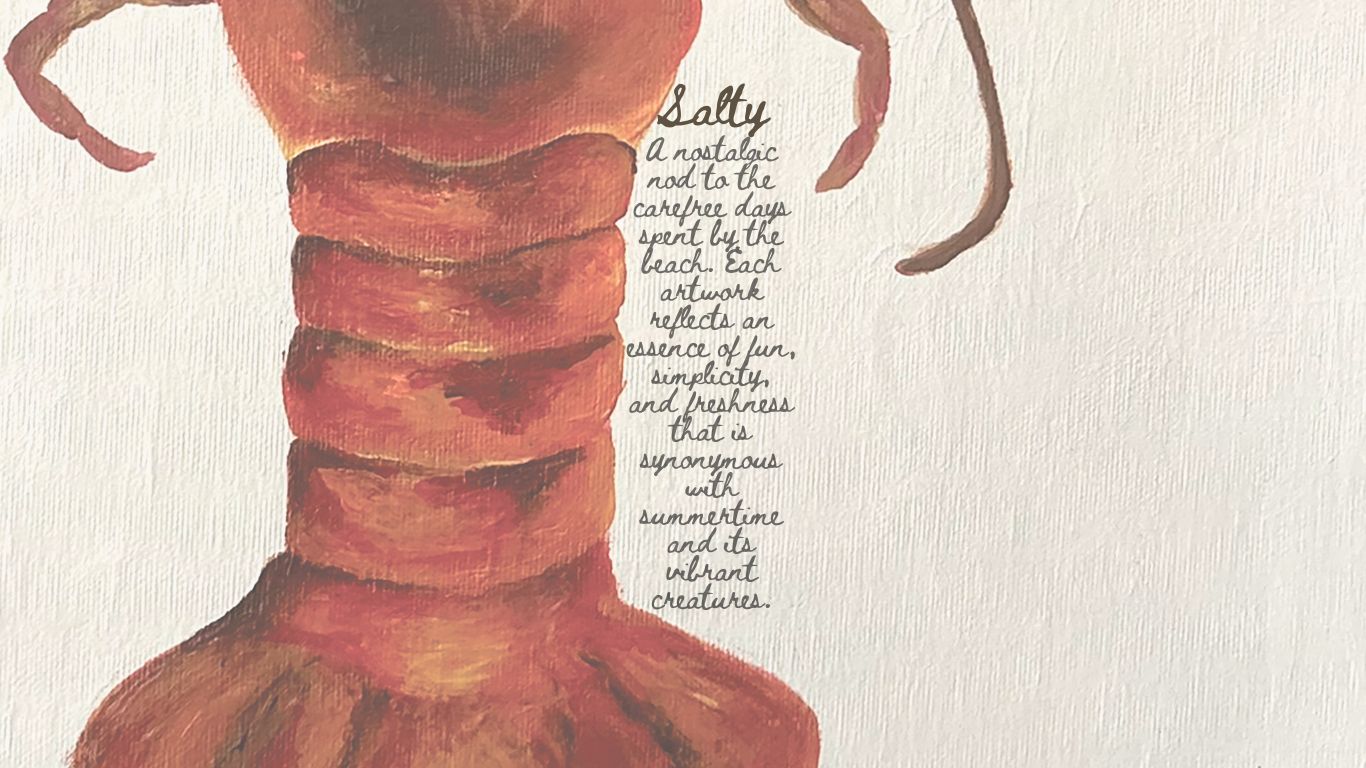 Salty
A nostalgic
nod to the
carefree days
spent by the
beach. Each
artwork
reflects an
essence of fun,
simplicity,
and freshness
that is
synonymous
with
summertime
and its
vibrant
creatures.